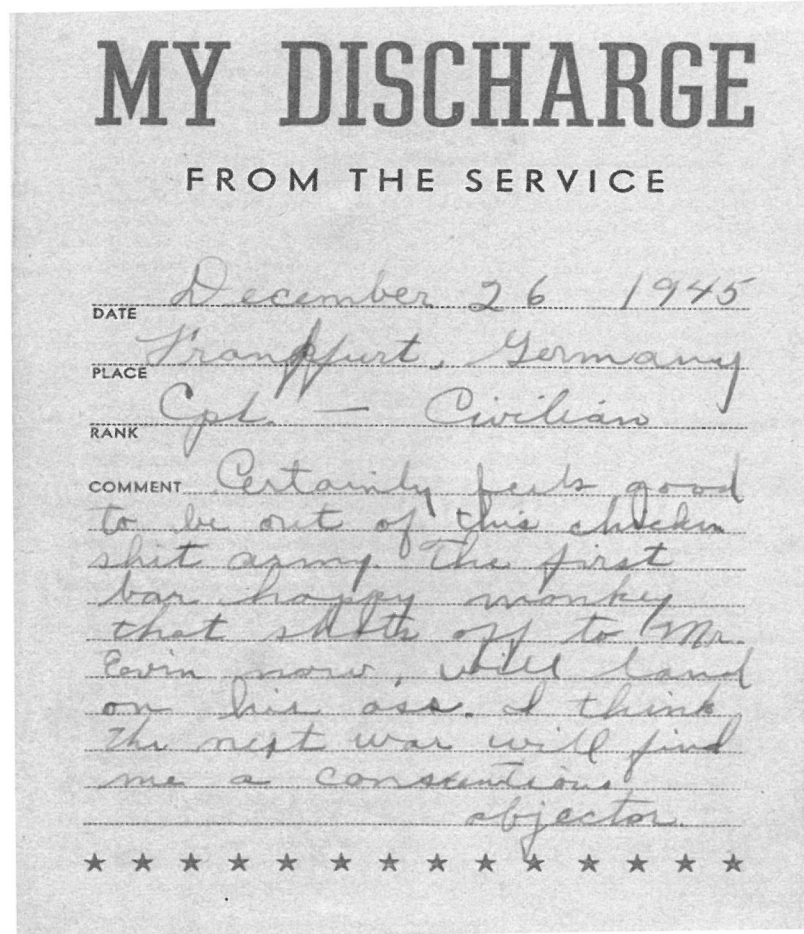 MY DISCHARGE
FROM THE SERVICE
DATE December 26 1945
PLACE Frankfurt, Germany
RANK Cpl. — Civilian
COMMENT Certainly feels good
to be out of this chicken
shit army. The first
bar happy monkey
that shoots off to Mr.
Evin now, will land
on his ass. I think
the next war will find
me a consientious
objector.